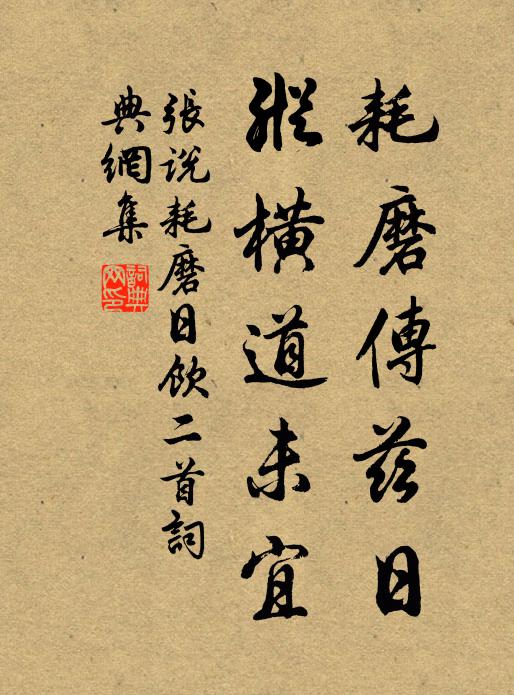 耗磨傳茲日
縱橫道未宜
張說耗磨日飲二首詞
典網集
詞典网印